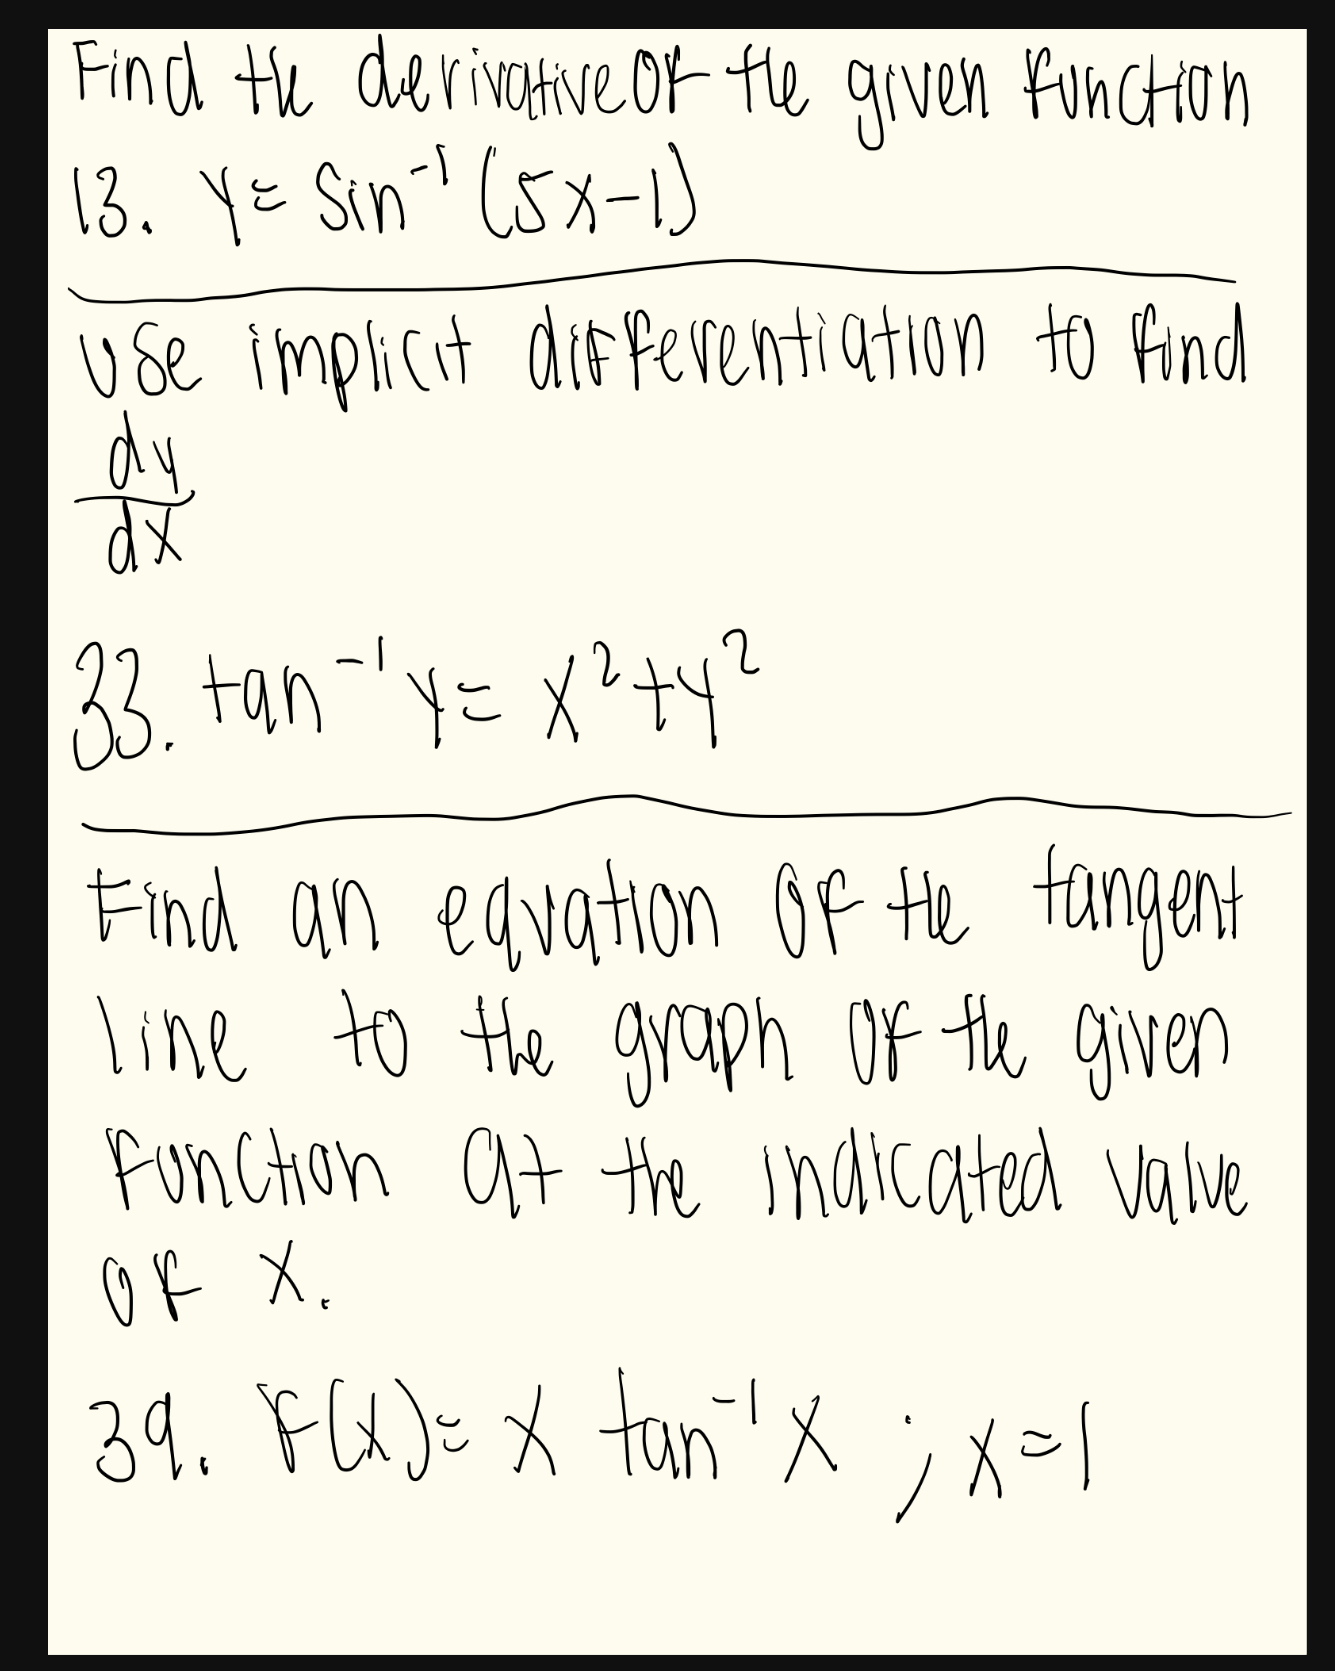 Find the derivative of the given function
13. y = sin⁻¹ (5x-1)
use implicit differentiation to find
dy
dx
33. tan⁻¹ y = x² + y²
Find an equation of the tangent
line to the graph of the given
function at the indicated value
of x.
39. f(x) = x tan⁻¹ x ; x = 1